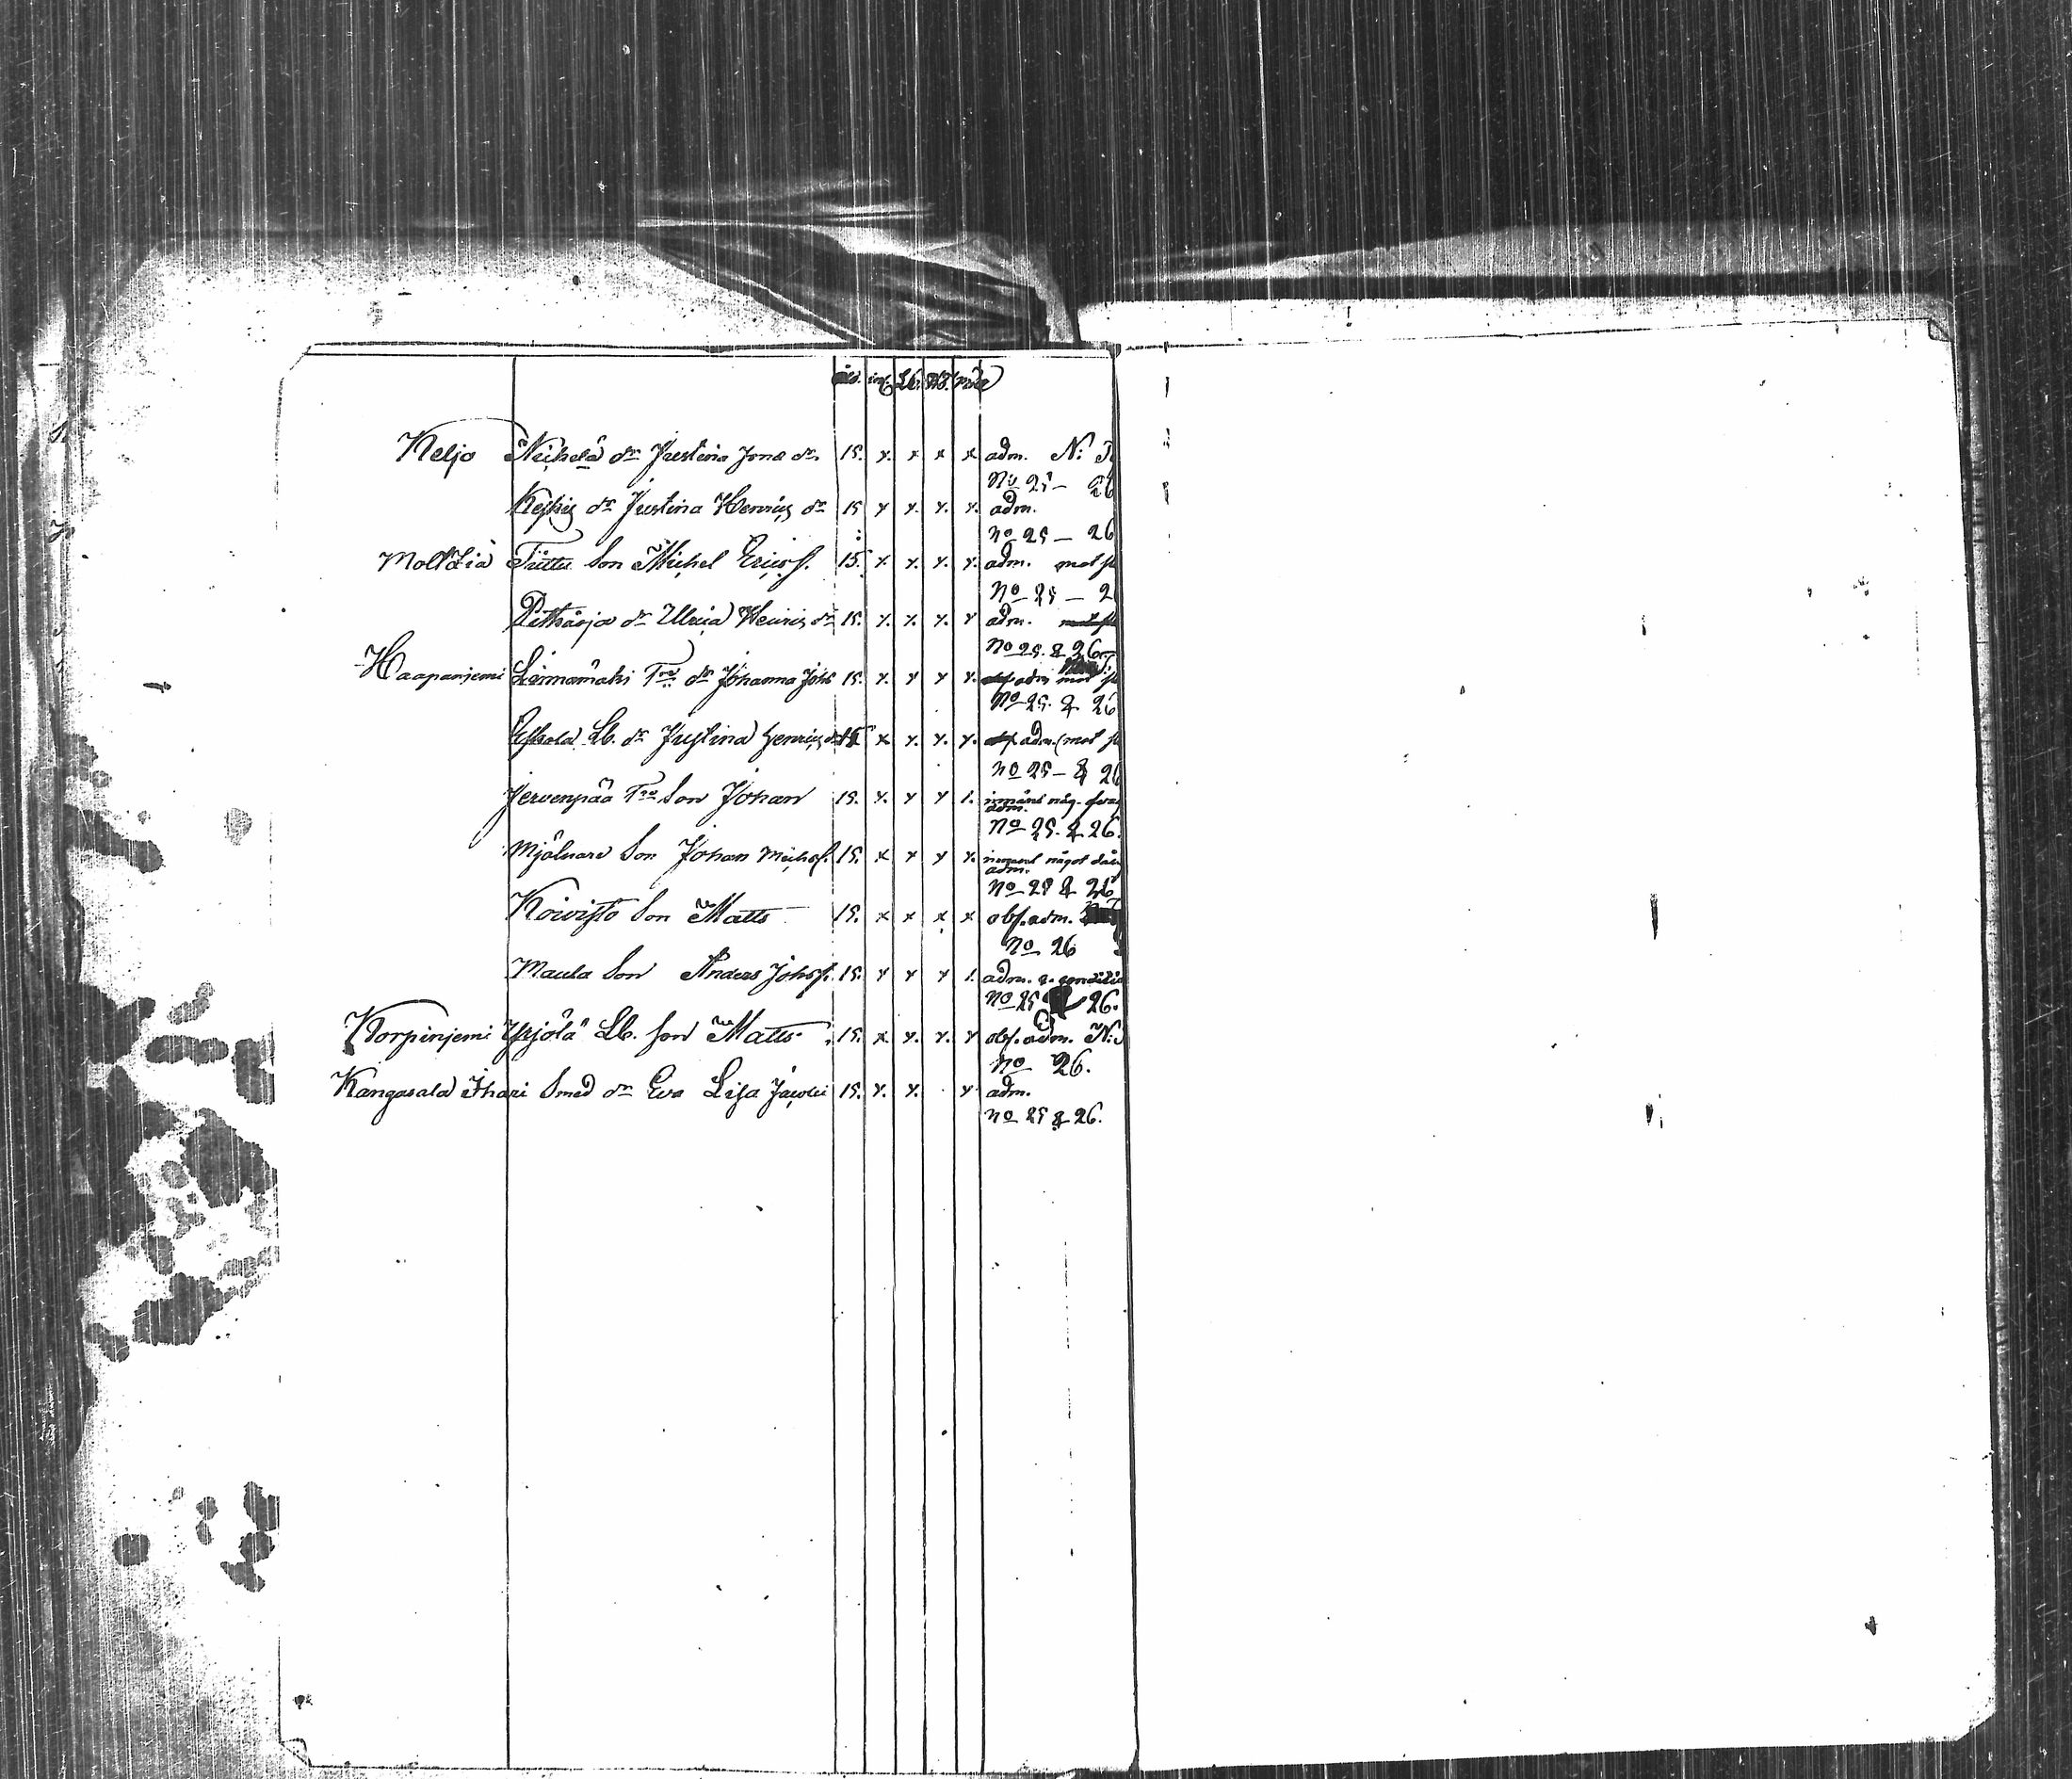 åld. inf. Lb.
Keljo Neihelä dr Justina Jonæ dr. 15. x. x x x adm. N:
No 25 — 26
dr Justina Henrics dr 15 x x. x. x. adm.
No 25 — 26
Tüttu Son Michel Ericsf. 15. x. x. x. x. adm. mot
No 25 — 2
dr Ulrica Henrics dr 15. x. x. x. x adm.
No 25. & 26
Haapaniemi Linnamäki Trp dr Johanna Johs 15. x. x x x. adm mot
No 25. & 26
Eskola Lb. dr Justina Henrics dr 15 x x. x. x. adm. (mot
No 25 — & 26
Jervenpää Trp Son Johan 15. x. x x 1. innant någ.
adm.
No 25. & 26.
Mjölnare Son Johan Michsf. 15. x x x x. innant något
adm.
No 25 & 26
Koivisto Son Matts 15. x x x x obs. adm.
No 26
Maula Son Anders Johsf. 15. x x x 1. adm. s. conditio
No 25 & 26.
Korpiniemi Yrjölä Lb. son Matts 15. x x. x. x obs. adm. N:
No 26.
Kangasala Ihari Smed dr Eva Lisa Jacobi 15. x. x. x adm.
No 25 & 26.